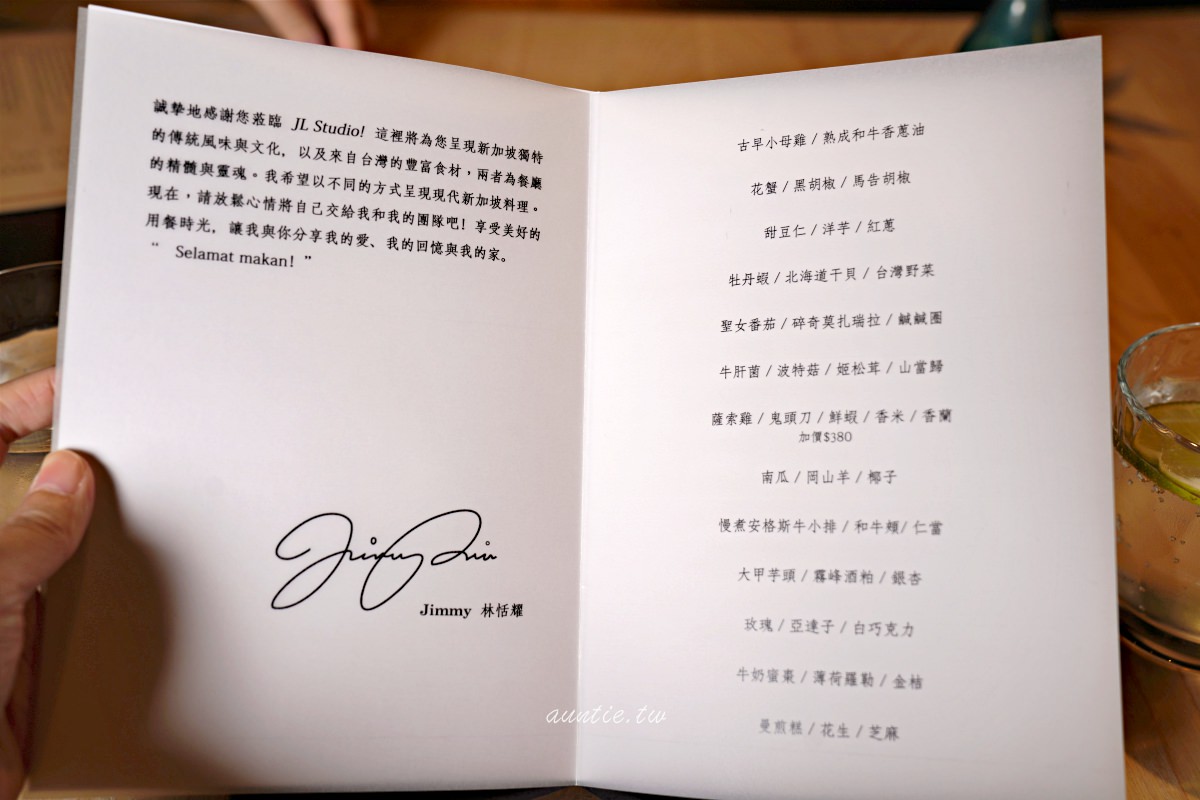 誠摯地感謝您蒞臨 JL Studio! 這裡將為您呈現新加坡獨特
的傳統風味與文化, 以及來自台灣的豐富食材,兩者為餐廳
的精髓與靈魂。我希望以不同的方式呈現現代新加坡料理。
現在,請放鬆心情將自己交給我和我的團隊吧! 享受美好的
用餐時光, 讓我與你分享我的愛、我的回憶與我的家。
“ Selamat makan! ”
Jimmy Lim
Jimmy 林恬耀
古早小母雞 / 熟成和牛香蔥油
花蟹 / 黑胡椒 / 馬告胡椒
甜豆仁 / 洋芋 / 紅蔥
牡丹蝦 / 北海道干貝 / 台灣野菜
聖女番茄 / 碎奇莫扎瑞拉 / 鹹鹹圈
牛肝菌 / 波特菇 / 姬松茸 / 山當歸
薩索雞 / 鬼頭刀 / 鮮蝦 / 香米 / 香蘭
加價$380
南瓜 / 岡山羊 / 椰子
慢煮安格斯牛小排 / 和牛頰 / 仁當
大甲芋頭 / 霧峰酒粕 / 銀杏
玫瑰 / 亞達子 / 白巧克力
牛奶蜜棗 / 薄荷羅勒 / 金桔
曼煎糕 / 花生 / 芝麻
auntie.tw